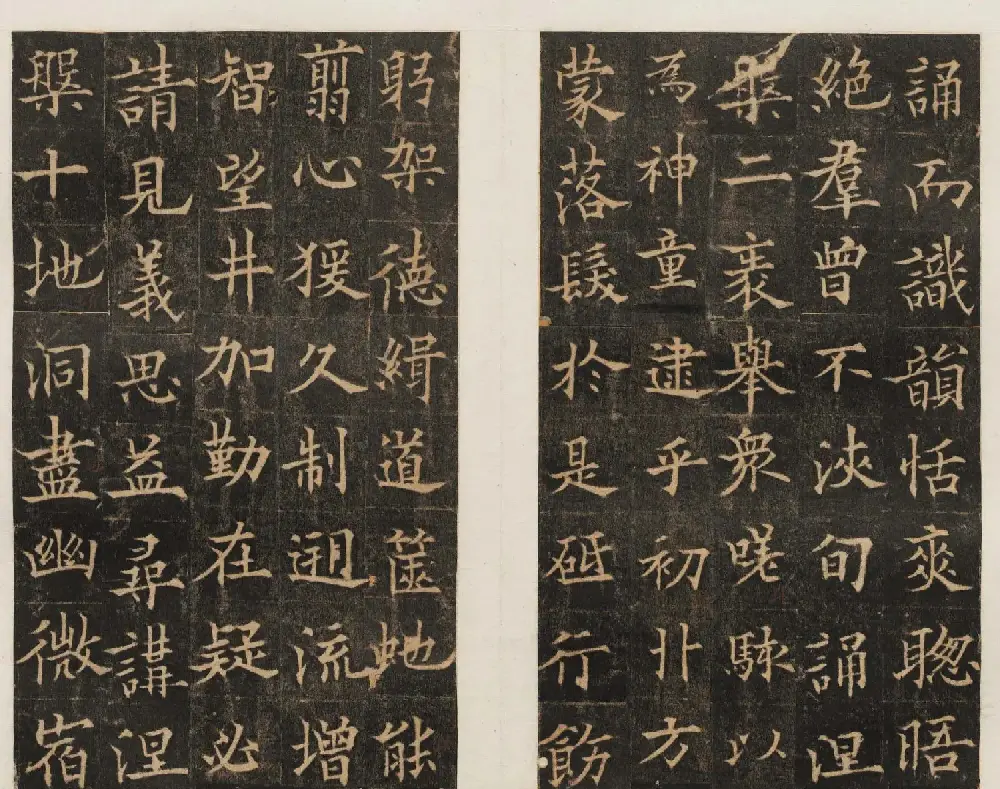 誦而識韻恬爽聦晤
絶羣曾不浹旬誦涅
槃二袠舉衆嗟駭以
為神童逮乎初丱方
蒙落髮於是砥行飭
躬架德緝道篋虵能
翦心猨久制遡流增
智望井加勤在疑必
請見義思益尋講涅
槃十地洞盡幽微宿